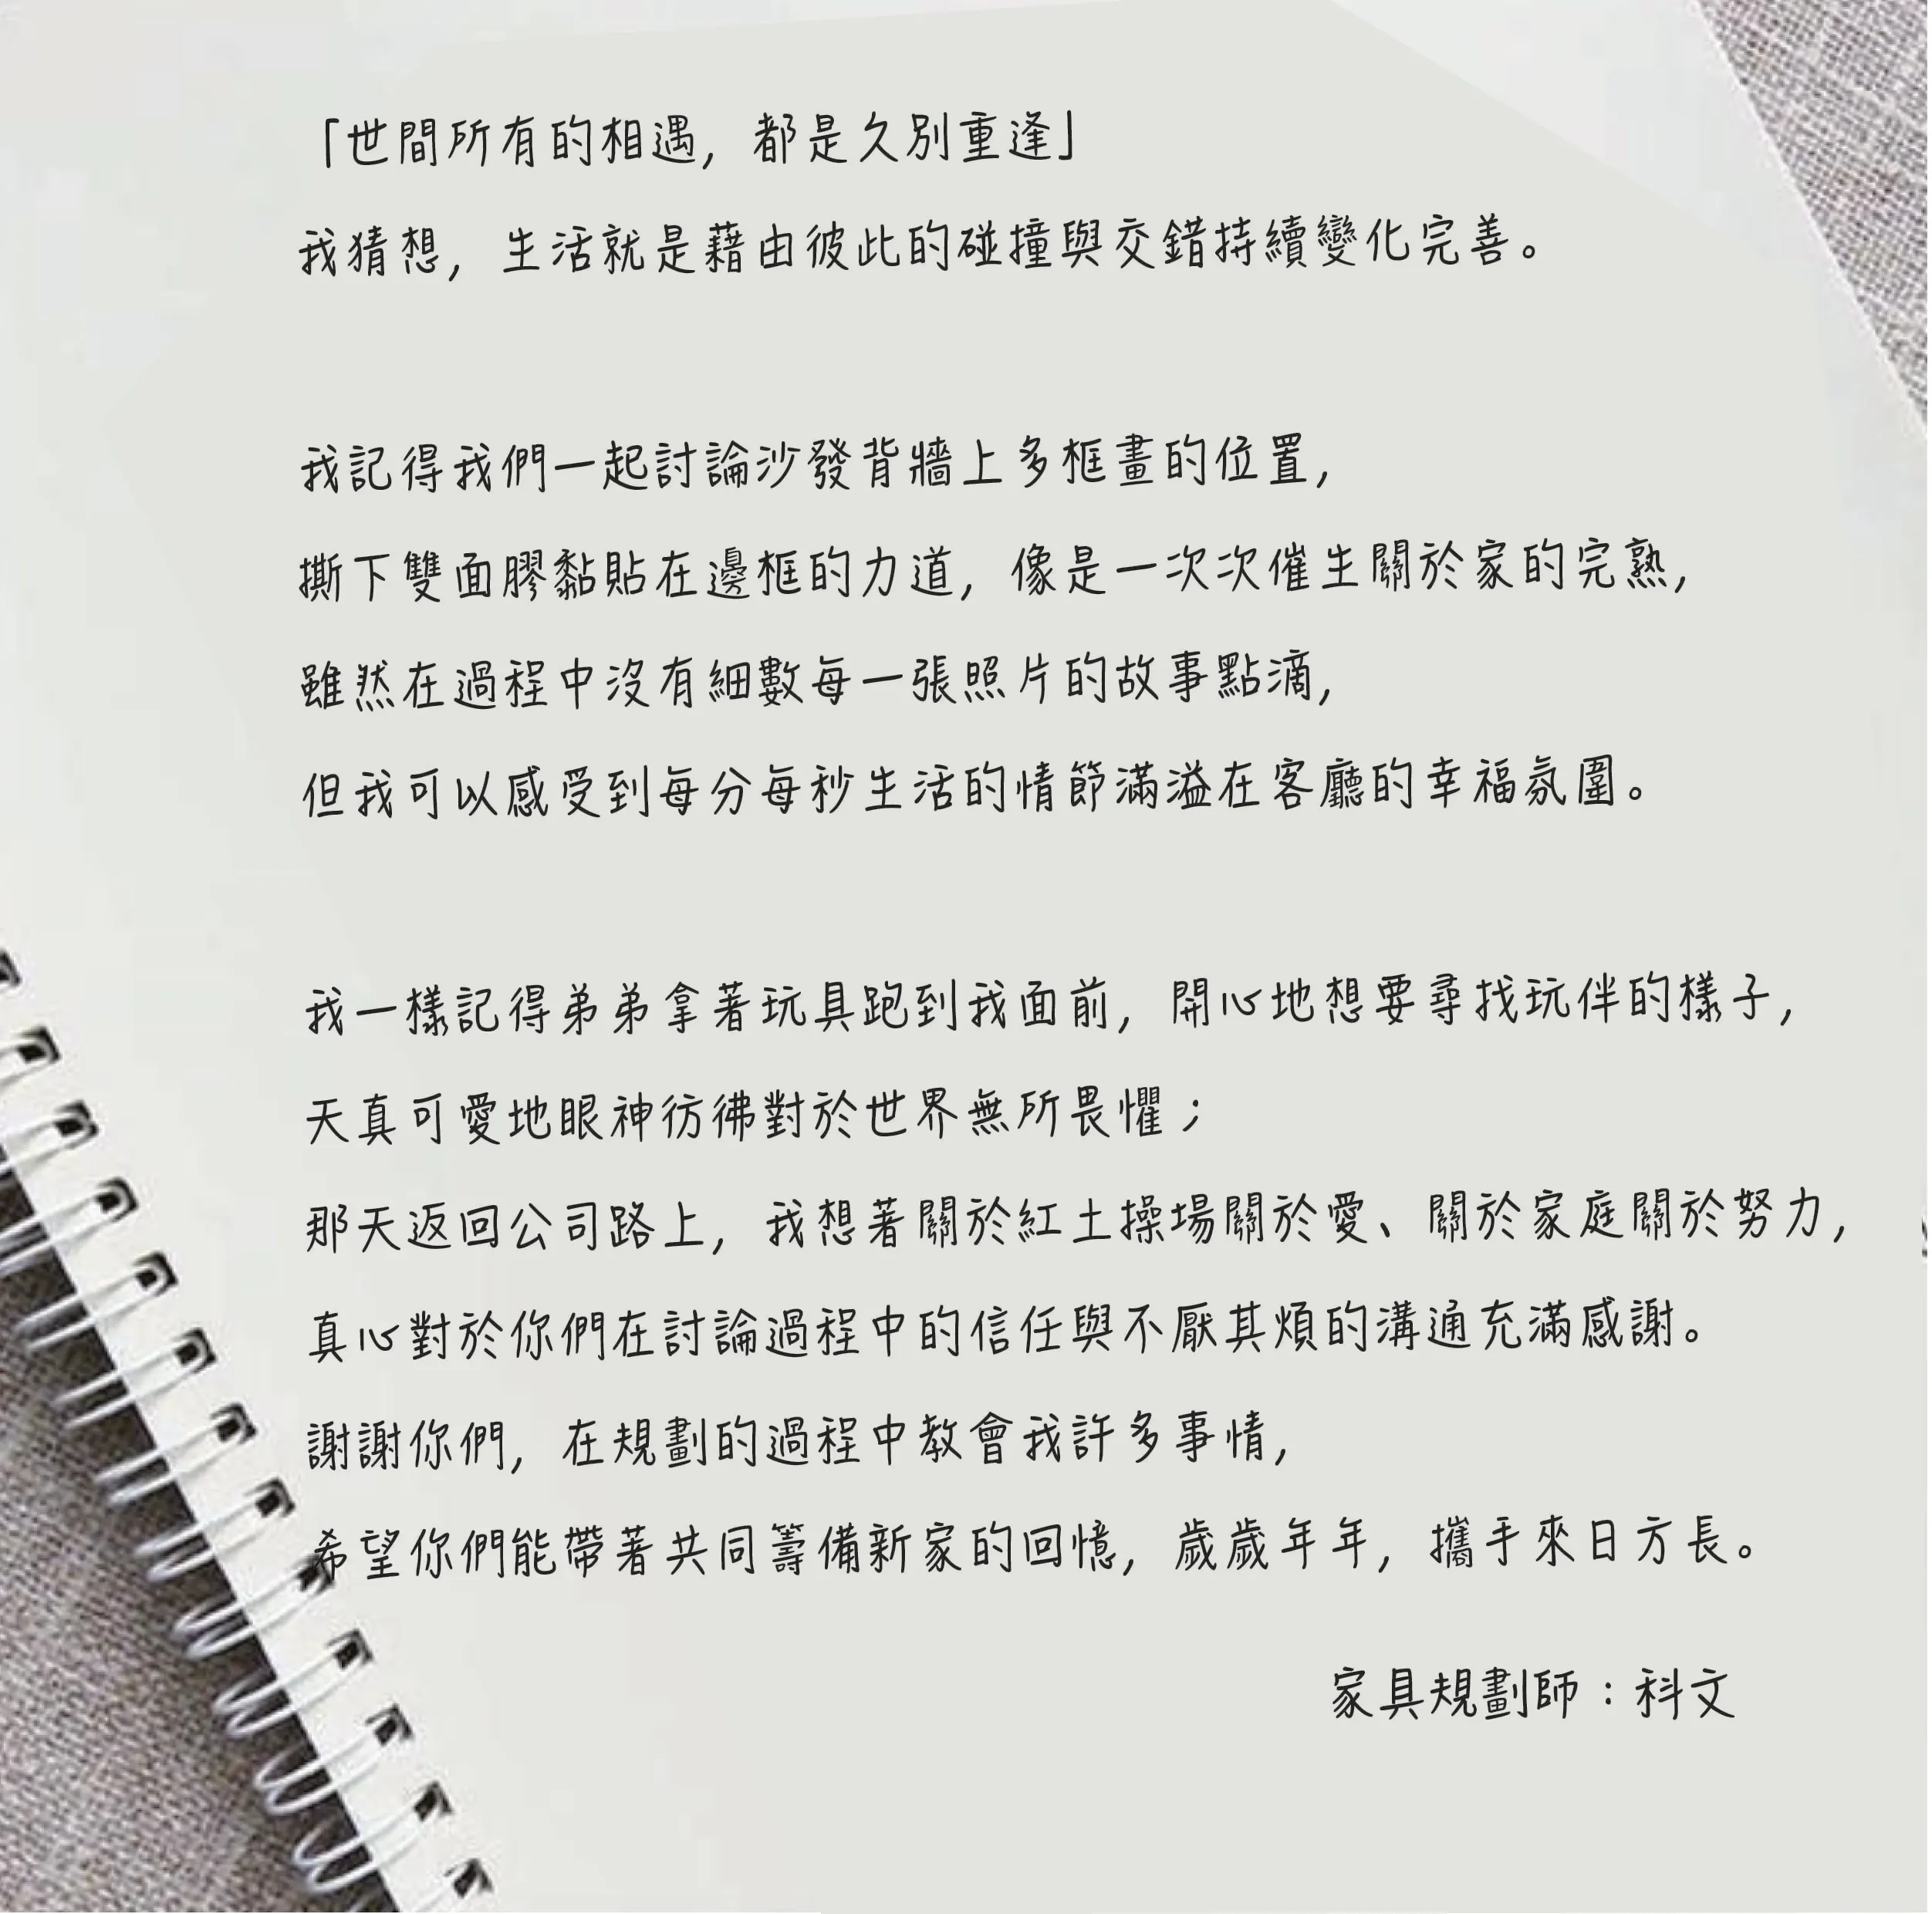 「世間所有的相遇，都是久別重逢」
我猜想，生活就是藉由彼此的碰撞與交錯持續變化完善。
我記得我們一起討論沙發背牆上多框畫的位置，
撕下雙面膠黏貼在邊框的力道，像是一次次催生關於家的完熟，
雖然在過程中沒有細數每一張照片的故事點滴，
但我可以感受到每分每秒生活的情節滿溢在客廳的幸福氛圍。
我一樣記得弟弟拿著玩具跑到我面前，開心地想要尋找玩伴的樣子，
天真可愛地眼神彷彿對於世界無所畏懼；
那天返回公司路上，我想著關於紅土操場關於愛、關於家庭關於努力，
真心對於你們在討論過程中的信任與不厭其煩的溝通充滿感謝。
謝謝你們，在規劃的過程中教會我許多事情，
希望你們能帶著共同籌備新家的回憶，歲歲年年，攜手來日方長。
家具規劃師：科文